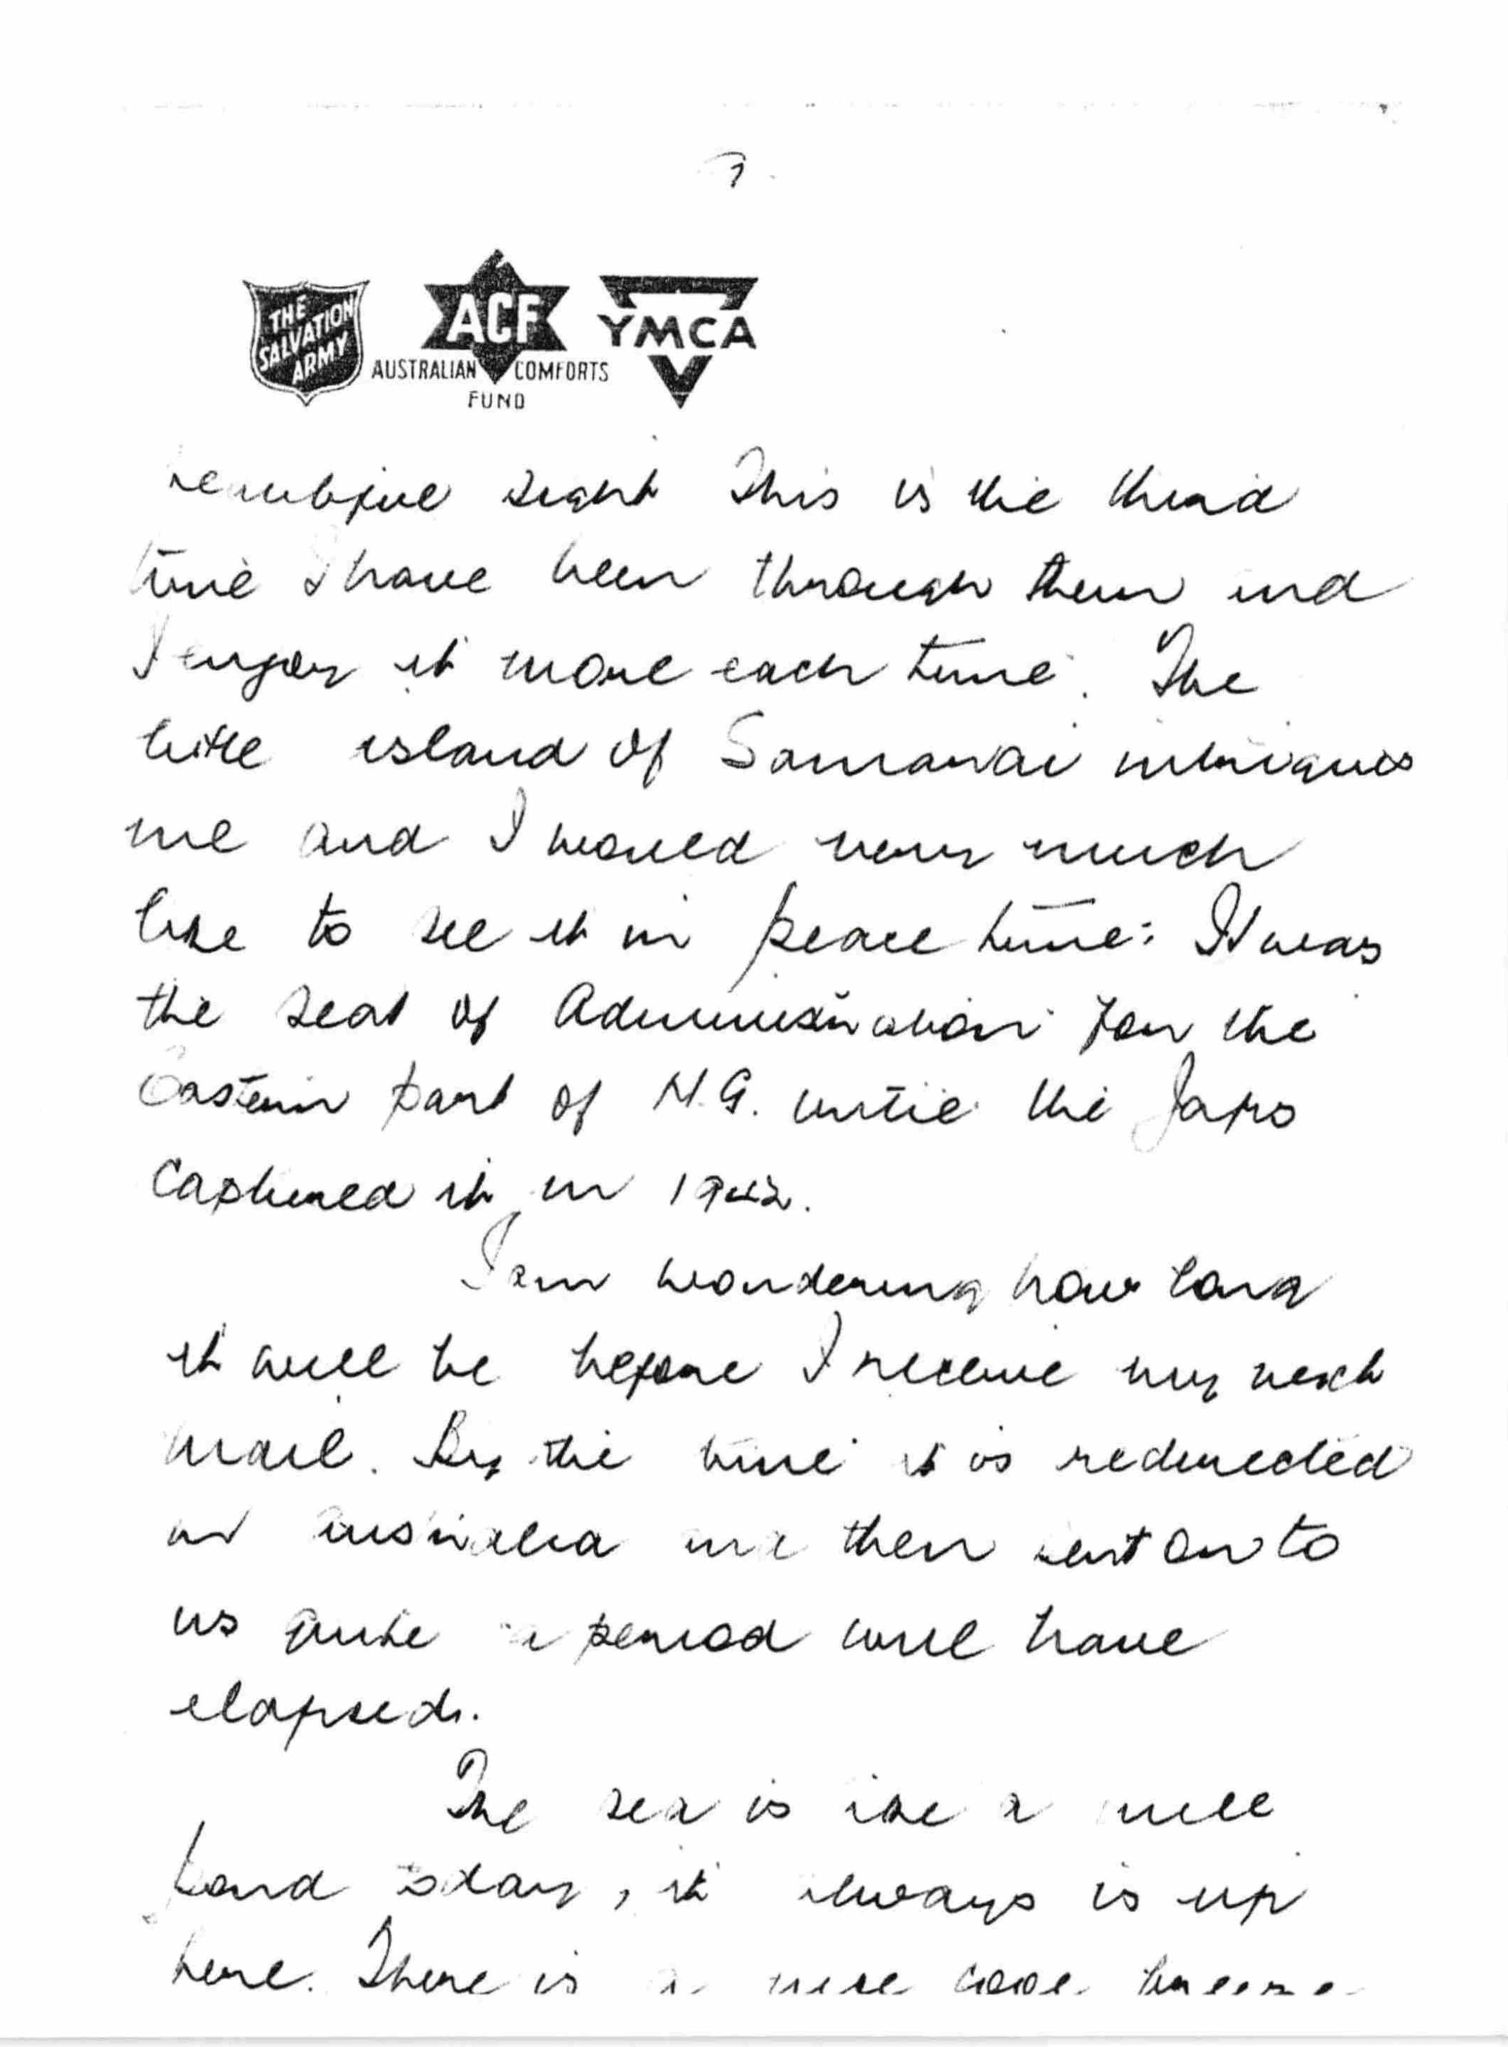 7.
THE SALVATION ARMY
ACF
AUSTRALIAN COMFORTS
FUND
YMCA
beautiful sight This is the third
time I have been through them and
I enjoy it more each time. The
little island of Samarai intrigues
me and I would very much
like to see it in peace time: It was
the seat of Administration for the
Eastern part of N.G. until the Japs
captured it in 1942.
I am wondering how long
it will be before I receive my next
mail. By the time it is redirected
in Australia and then sent on to
us quite a period will have
elapsed.
The sea is like a mill
pond today, it always is up
here. There is a nice cool breeze